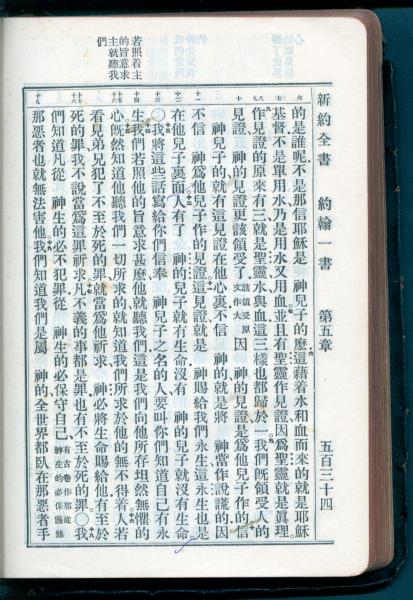 新約全書 約翰一書 第五章 五百三十四
的是誰呢不是那信耶穌是 神兒子的麽這藉着水和血而來的就是耶穌
基督不是單用水乃是用水又用血並且有聖靈作見證因爲聖靈就是眞理
作見證的原來有三就是聖靈水與血這三樣也都歸於一我們旣領受人的
見證 神的見證更該領受了因 神的見證是爲他兒子作的信
神兒子的就有這見證在他心裏不信 神的就是將 神當作說謊的因
不信 神爲他兒子作的見證這見證就是 神賜給我們永生這永生也是
在他兒子裏面人有了 神的兒子就有生命沒有 神的兒子就沒有生命
○我將這些話寫給你們信奉 神兒子之名的人要叫你們知道自己有永
生我們若照他的旨意求甚麽他就聽我們這是我們向他所存坦然無懼的
心旣然知道他聽我們一切所求的就知道我們所求於他的無不得着人若
看見弟兄犯了不至於死的罪就當爲他祈求 神必將生命賜給他有至於
死的罪我不說當爲這罪祈求凡不義的事都是罪也有不至於死的罪○我
們知道凡從 神生的必不犯罪從 神生的必保守自己
那惡者也就無法害他我們知道我們是屬 神的全世界都臥在那惡者手
若照着主
的旨意求
主就聽我
們